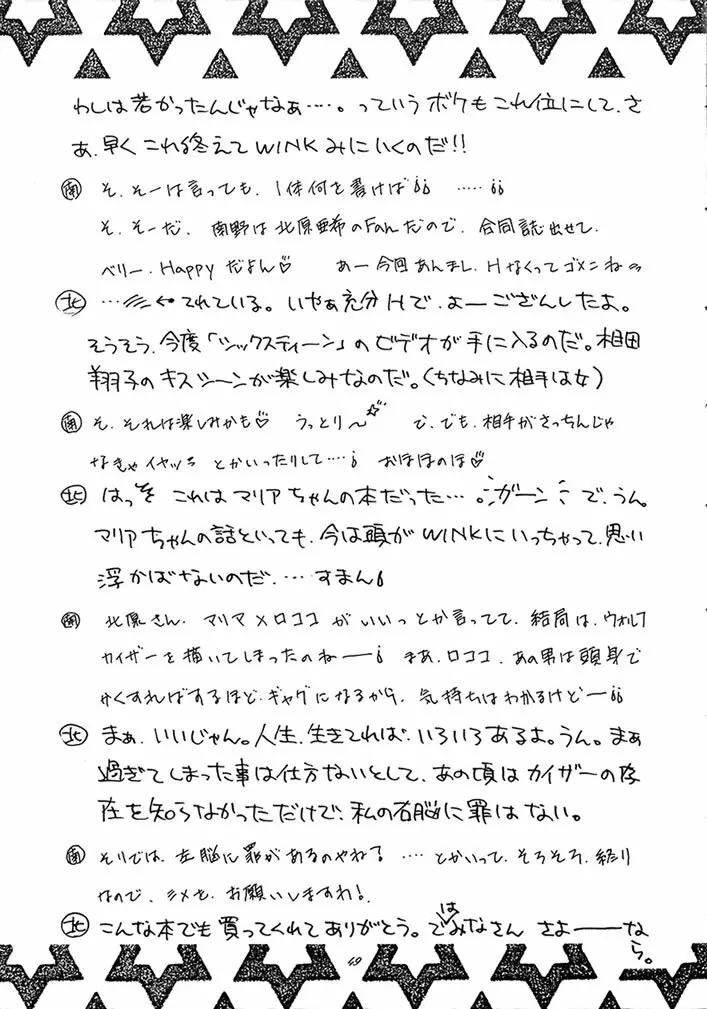 わしは若かったんじゃなぁ……。っていうボケもこれ位にして、さ
ぁ、早くこれ終えてWINKみにいくのだ!!
南 そ、そーは言っても、1体何を書けば¡¡ ……¡¡
そ、そーだ、南野は北原亜希のFanだので、合同誌出せて、
ベリー、Happyだよん♡ あー今回あんまし、Hなくってゴメンね
北 …←てれている。いやぁ充分Hで、よーござんしたよ。
そうそう、今度「シックスティーン」のビデオが手に入るのだ。相田
翔子のキスシーンが楽しみなのだ。(ちなみに相手は女)
南 そ、それは楽しみかも♡ うっとり〜☆ で、でも、相手がさっちんじゃ
なきゃイヤッ とかいったりして…¡ おほほのほ♡
北 はっ これはマリアちゃんの本だった… ガーン で、うん。
マリアちゃんの話といっても、今は頭がWINKにいっちゃって、思い
浮かばないのだ、…すまん¡
南 北原さん、マリア×ロココがいいっとか言ってて、結局は、ウォルフ
カイザーを描いてしまったのねー¡ まあ、ロココ、あの男は頭身で
かくすればするほど、ギャグになるから、気持ちはわかるけどー¡¡
北 まぁ、いいじゃん。人生、生きてれば、いろいろあるよ。うん。まぁ
過ぎてしまった事は仕方ないとして、あの頃はカイザーの存
在を知らなかっただけで、私の右脳に罪はない。
南 そりでは、左脳に罪があるのやね? …とかいって、そろそろ、終り
なので、シメを、お願いしますわ!
北 こんな本でも買ってくれてありがとう。ではみなさん さよーーなら。
49